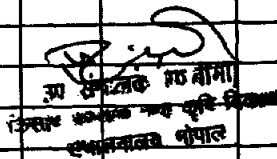 संचालक बीमा
किसान कल्याण तथा कृषि विकास
संचालनालय भोपाल